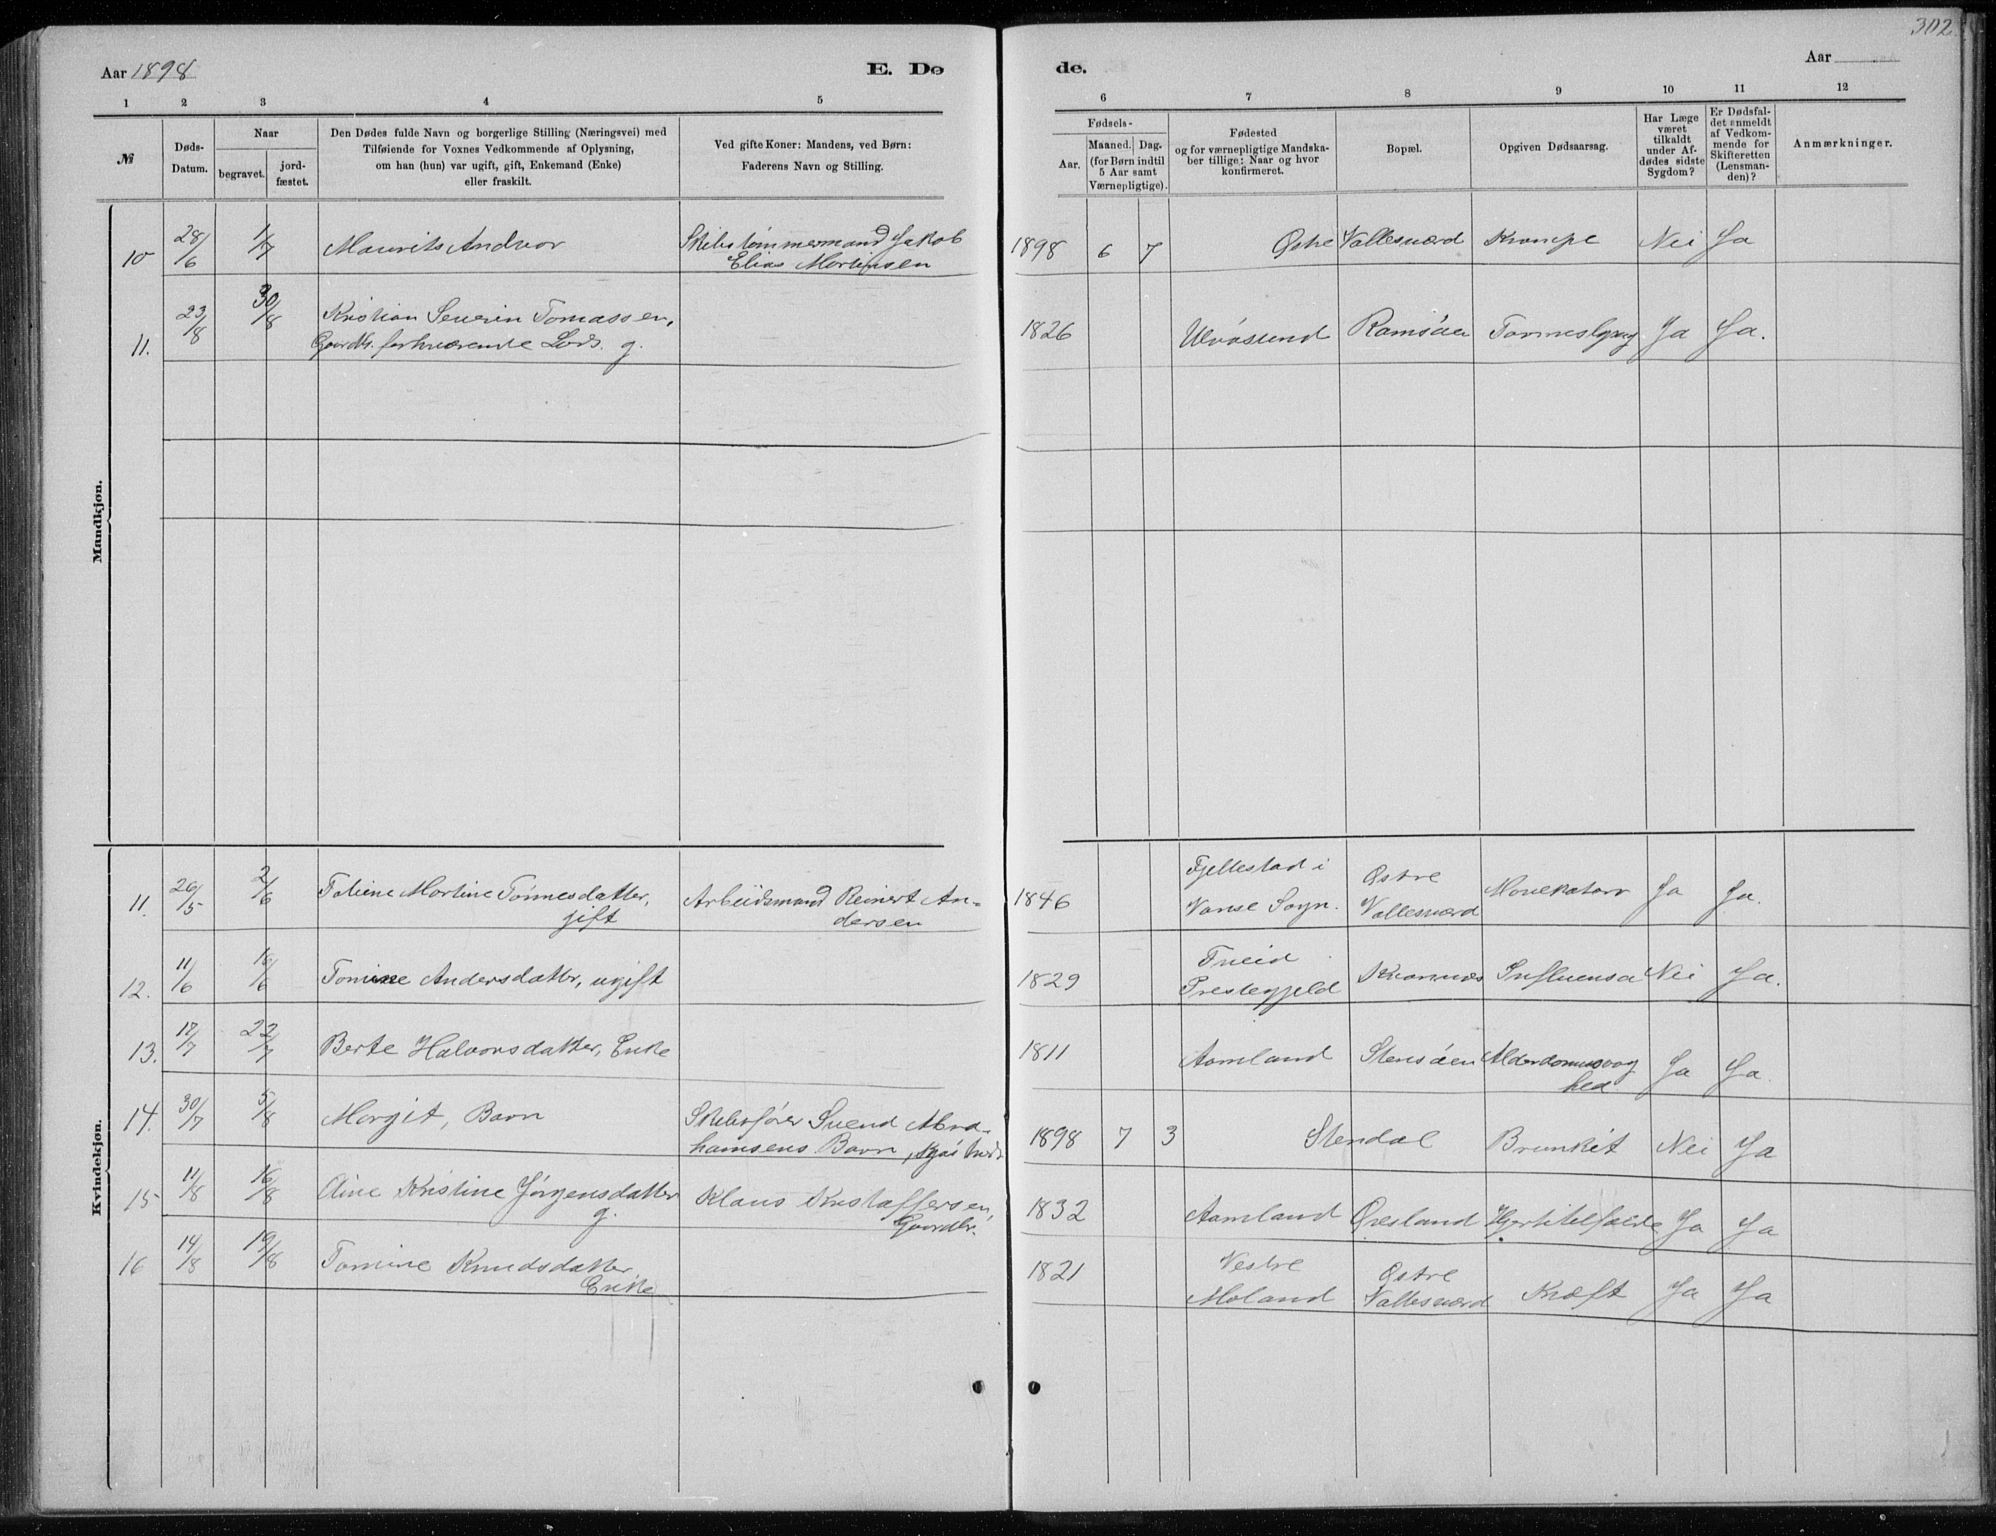 302
Aar 1898
E. Dø
de.
Aar
1 2 3 4 5 6 7 8 9 10 11 12
№
Døds-
Datum.
Naar
begravet.
jord-
fæstet.
Den Dødes fulde Navn og borgerlige Stilling (Næringsvei) med
Tilføiende for Voxnes Vedkommende af Oplysning,
om han (hun) var ugift, gift, Enkemand (Enke)
eller fraskilt.
Ved gifte Koner: Mandens, ved Børn:
Faderens Navn og Stilling.
Fødsels-
Aar.
Maaned. Dag.
(for Børn indtil
5 Aar samt
Værnepligtige).
Fødested
og for værnepligtige Mandska-
ber tillige: Naar og hvor
konfirmeret.
Bopæl.
Opgiven Dødsaarsag.
Har Læge
været
tilkaldt
under Af-
dødes sidste
Sygdom?
Er Dødsfal-
det anmeldt
af Vedkom-
mende for
Skifteretten
(Lensman-
den)?
Anmærkninger.
Mandkjøn.
10 28/6 1/7 Maurits Andvor Skibstømmermand Jakob
Elias Mortensen
1898 6 7 Østre Vallesværd Krampe Nei Ja
11. 23/8 30/8 Kristian Severin Tomassen,
Gaardbr. forhværende Lods. g.
1826 Ulvøsund Ramsøen Ja Ja.
Kvindekjøn.
11. 26/5 2/6 Taliene Martine Tønnesdatter,
gift
Arbeidsmand Reinert An-
dersen
1846 Fjellestad i
Vanse Sogn.
Østre
Vallesværd
Mavekatarr Ja Ja.
12. 11/6 16/6 Tomine Andersdatter, ugift
1829 Tveid
Prestegjeld
Kvannes Influensa Nei Ja.
13. 17/7 22/7 Berte Halvorsdatter, Enke
1811 Aamland Stensøen Alderdomssvag
hed
Ja Ja.
14. 30/7 5/8 Margit, Barn Skibsfører Svend Abra-
hamsens Barn,
1898 7 3 Stendal Bronkit Nei Ja
15 11/8 16/8 Aine Kristine Jørgensdatter
g.
Klaus Kristaffersen,
Gaardbr.
1832 Aamland Øresland Ja Ja
16 14/8 19/8 Tomine Knudsdatter
Enke
1821 Vestre
Moland
Østre
Vallesværd
Kræft Ja Ja